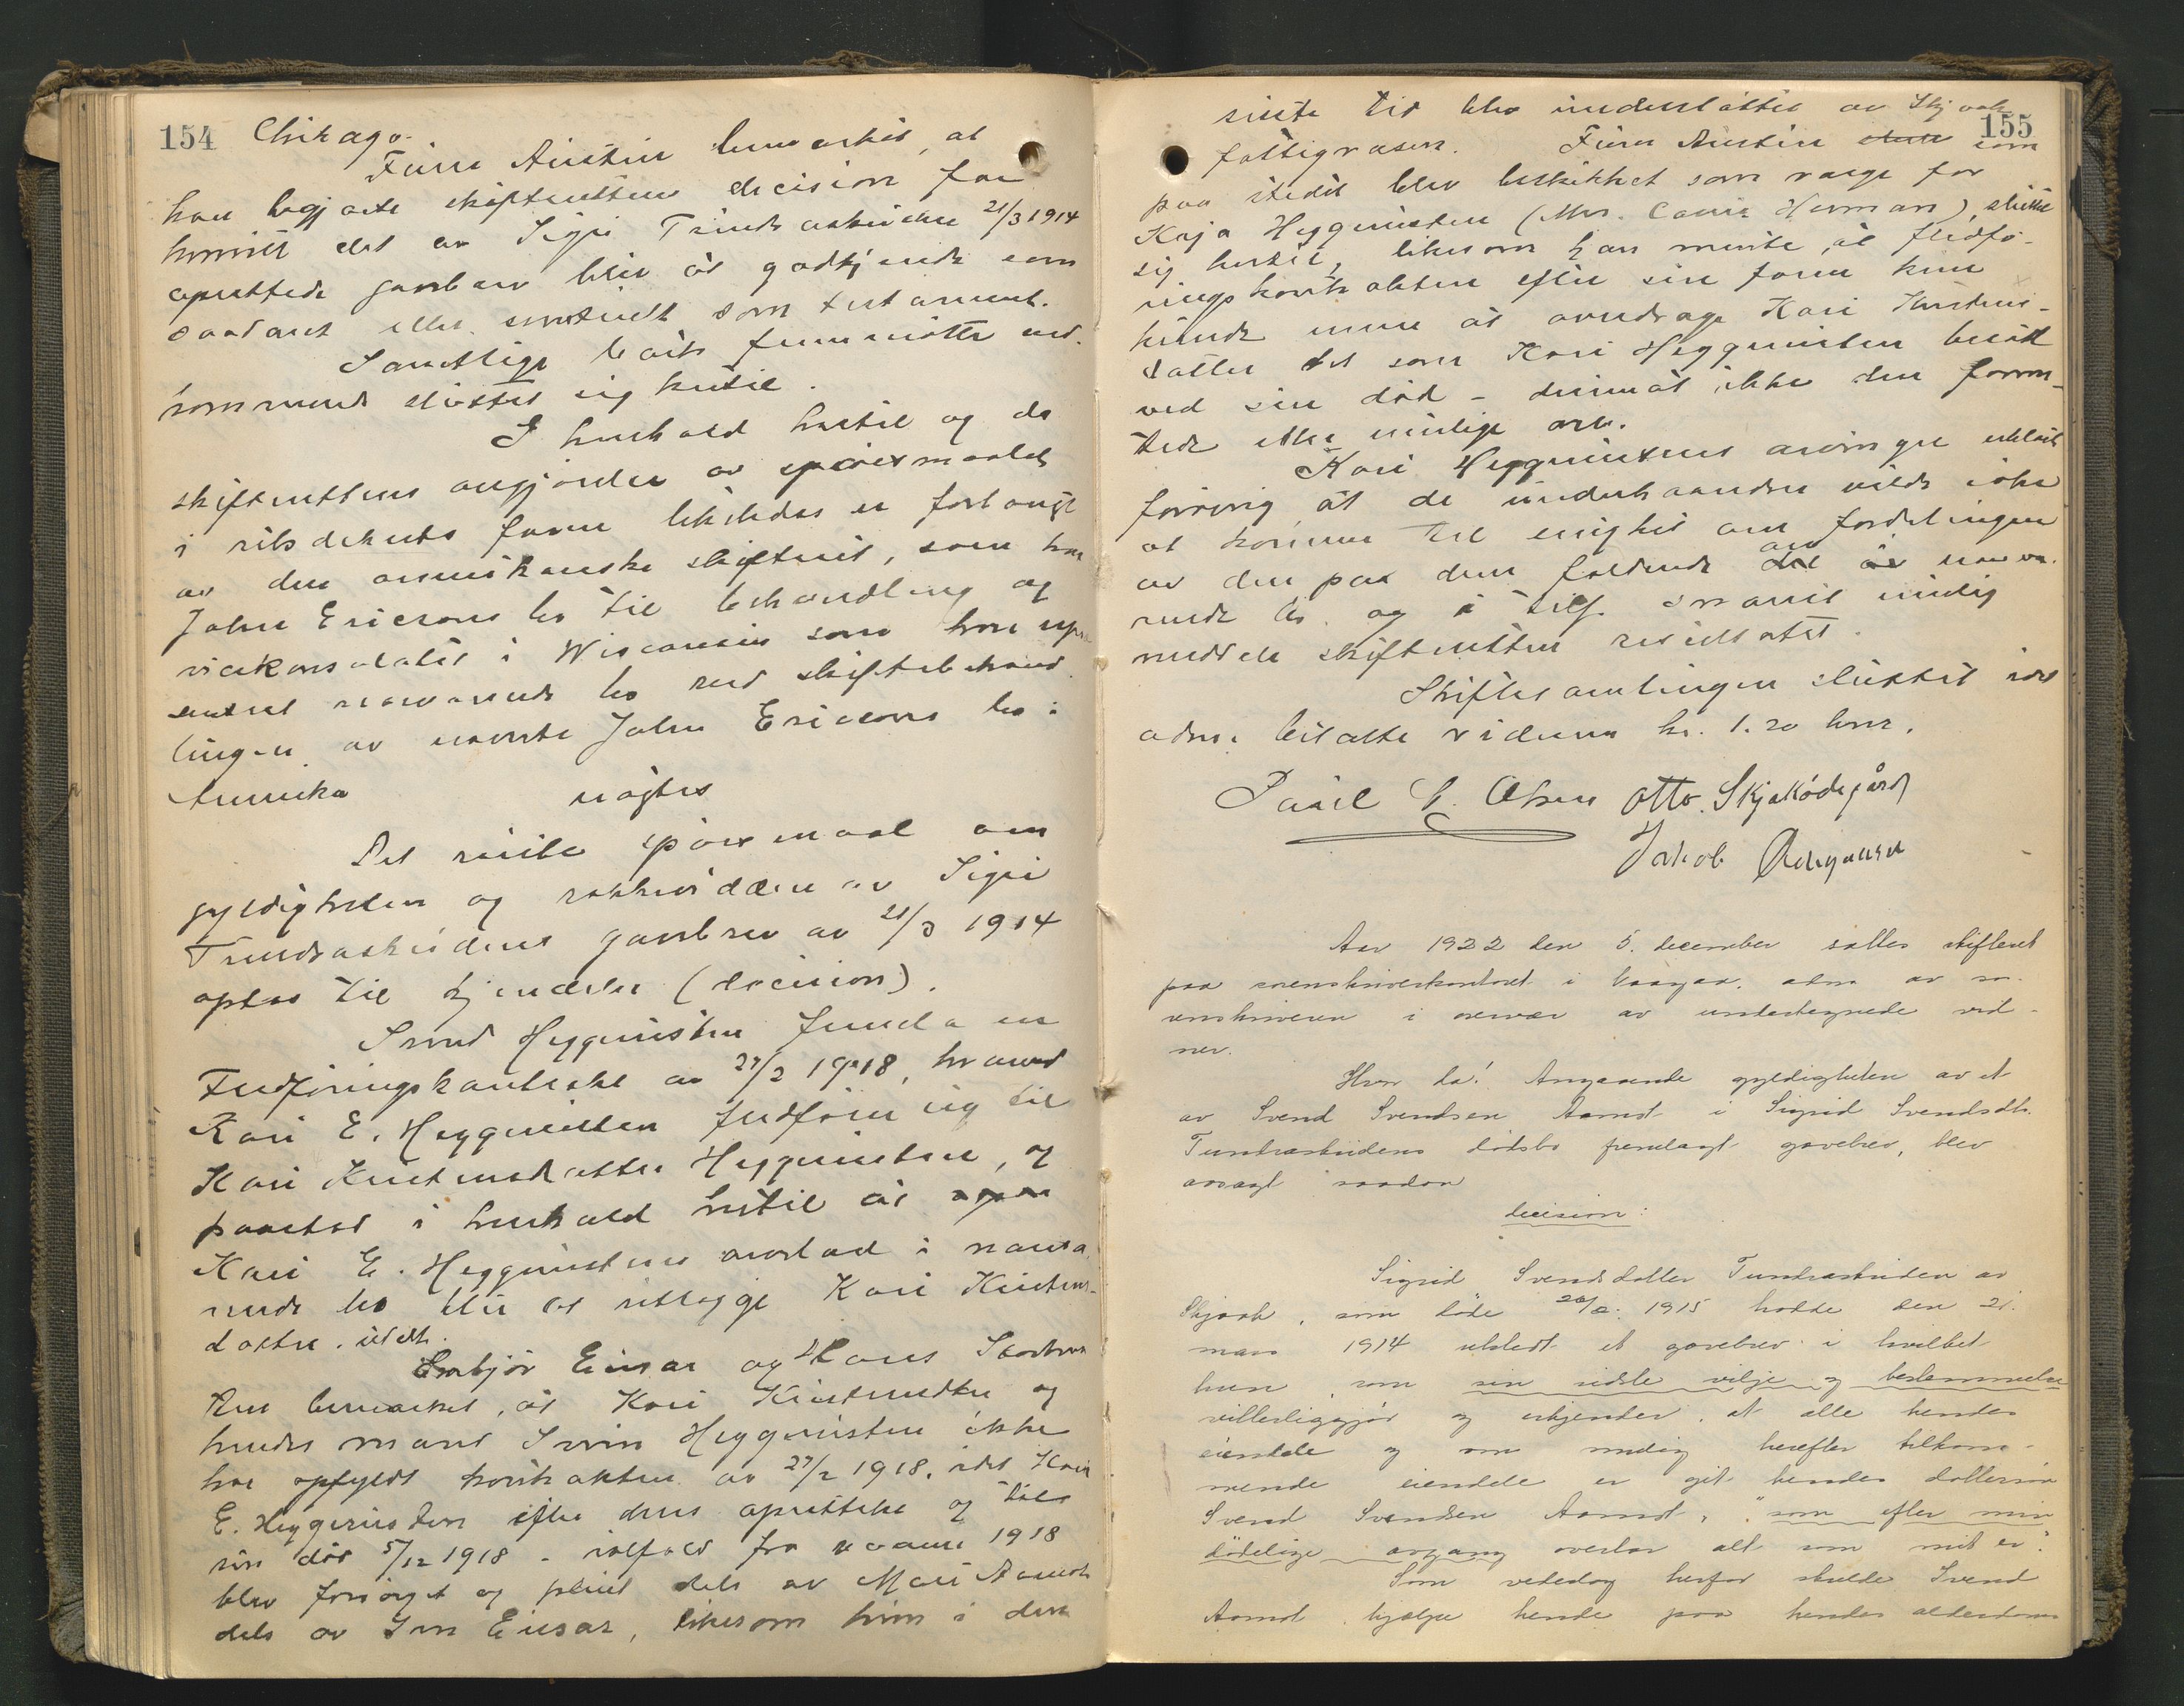 154
Chikago.
Finn Austin bemærket, at
han begjærte skifterettens decision for
hvorvidt det av Sigri Tundraskriden 21/3 1914
oprettede gavebrev blir at godkjende som
saadant eller eventuelt som testament.
Samtlige høirs fremmøtte ved-
kommende sluttet sig hertil.
I henhold hertil og da
skifterettens avgjørelse av spørsmaalet
i retsdekrets form likeledes er forlangt
av den amerikanske skifteret, som har
John Ericsons bo til behandling og
vicekonsulatet i Wisconsin som har repre-
sentert nærværende bo ved skiftebehand-
lingen av nævnte John Ericsons bo i
Amerika
nægtes
Det reiste spørsmaal om
gyldigheten og rækkevidden av Sigri
Tundraskridens gavebrev av 21/3 1914
optas til kjendelse (decision).
Svend Heggeristen fremla en
Fledføringskontrakt av 27/2 1918, hvorved
Kari E. Heggeristen fledfører sig til
Kari Kristensdatter Heggeristen, og
paastod i henhold hertil at
Kari E. Heggeristens arvelod i nærvæ-
rende bo blir at utlægge Kari Kristens-
datter.
Embjør Einar og Hans
bemærket, at Kari Kristensdtr og
hendes mand Iver Heggeristen ikke
har opfyldt kontrakten av 27/2 1918, idet Kari
E. Heggeristen efter dens oprettelse og til
sin død 5/12 1918 - ialfald fra vaaren 1918
blev forsørget og pleiet dels av Mari Aamot
dels av Iver Einar, likesom hun i den
155
siste tid blev understøttet av Skjaak
fattigvæsen. Finn Austin som
paa stedet blev beskikket som værge for
Kaja Heggeristen (Mrs. Carrie Herman), sluttet
sig hertil, likesom han mente, at fledfø-
ringskontrakten efter sin form kun
kunde munne at overdrage Kari Kristens-
datter det som Kari Heggeristen besatt
ved sin død - derimot ikke den forven-
tede eller mulige arv.
Kari Heggeristens arvinger erklærte
forøvrig at de underhaanden vilde søke
at komme til enighet om fordelingen
av den paa dem faldende del av nærvæ-
rende bo og i tilf. snarest mulig
meddele skifteretten resultatet.
Skiftesamlingen sluttet idet
adm. betalte vidnene kr. 1.20 hver.
Paul L. Olsen Otto Skjåkødegård
Jakob Ødegaard
Aar 1922 den 5. december sattes skifteret
paa sorenskriverkontoret i Vaagaa, adm av so-
renskriveren i overvær av undertegnede vid-
ner.
Hvor da! Angaaende gyldigheten av et
av Svend Svendsen Aamot i Sigrid Svendsdtr.
Tundraskridens dødsbo fremlagt gavebrev, blev
avsagt saadan
decision:
Sigrid Svendsdatter Tundraskriden av
Skjaak, som døde 20/2. 1915 hadde den 21.
mars 1914 utstedt et gavebrev i hvilket
hun, som sin sidste vilje og bestemmelse
vitterliggjør og erkjender, at alle hendes
eiendele og om mulig herefter tilkom-
mende eiendele er git hendes dattersøn
Svend Svendsen Aamot, "som efter min
dødelige avgang overtar alt som mit er".
Som vederlag herfor skulde Svend
Aamot hjælpe hende paa hendes alderdom